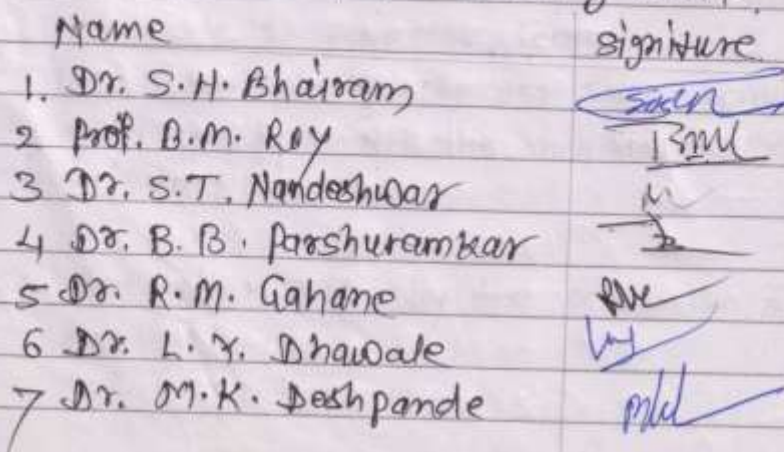 Name signiture
1. Dr. S.H. Bhairam
2 Prof. B.M. Roy
3 Dr. S.T. Nandeshwar
4 Dr. B.B. Parshuramkar
5 Dr. R.M. Gahane
6 Dr. L.Y. Dhawale
7 Dr. M.K. Deshpande